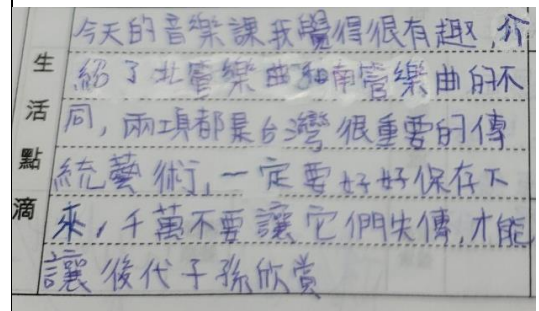 生活點滴
今天的音樂課我覺得很有趣,介
紹了北管樂曲和南管樂曲的不
同,兩項都是台灣很重要的傳
統藝術,一定要好好保存下
來,千萬不要讓它們失傳,才能
讓後代子孫欣賞